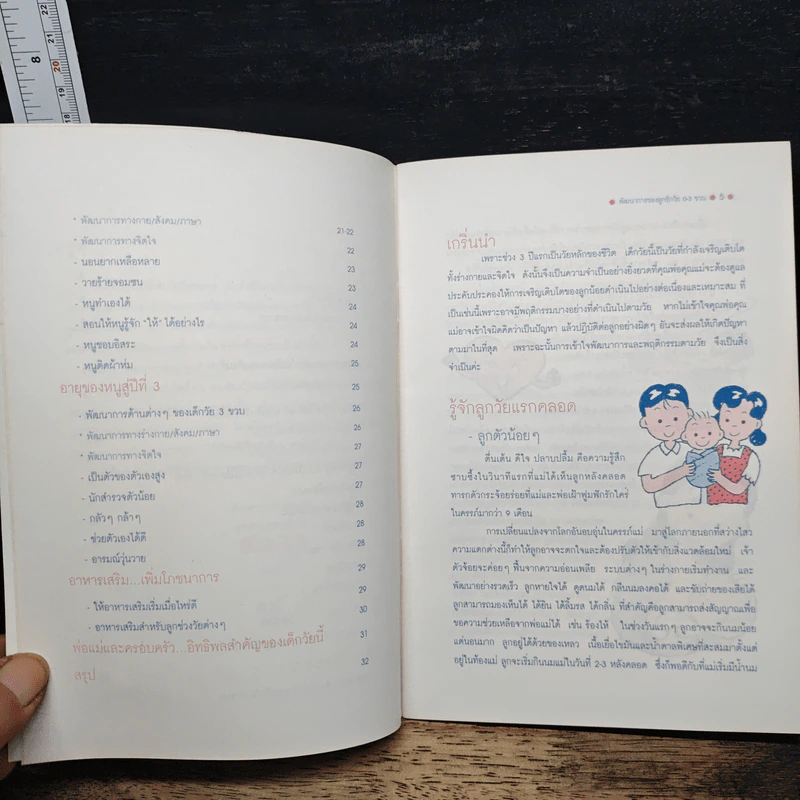 8
22
21
20
19
18
* พัฒนาการทางกาย/สังคม/ภาษา 21-22
* พัฒนาการทางจิตใจ 22
- นอนยากเหลือหลาย 23
- วายร้ายจอมซน 23
- หนูทำเองได้ 24
- สอนให้หนูรู้จัก "ให้" ได้อย่างไร 24
- หนูชอบอิสระ 24
- หนูติดผ้าห่ม 25
อายุของหนูสู่ปีที่ 3 25
- พัฒนาการด้านต่างๆ ของเด็กวัย 3 ขวบ 26
* พัฒนาการทางร่างกาย/สังคม/ภาษา 26
* พัฒนาการทางจิตใจ 27
- เป็นตัวของตัวเองสูง 27
- นักสำรวจตัวน้อย 28
- กลัวๆ กล้าๆ 28
- ช่วยตัวเองได้ดี 28
- อารมณ์วุ่นวาย 29
อาหารเสริม...เพิ่มโภชนาการ 29
- ให้อาหารเสริมเริ่มเมื่อไหร่ดี 30
- อาหารเสริมสำหรับลูกช่วงวัยต่างๆ
พ่อแม่และครอบครัว...อิทธิพลสำคัญของเด็กวัยนี้ 31
สรุป 32
พัฒนาการของลูกรักวัย 0-3 ขวบ 5
เกริ่นนำ
เพราะช่วง 3 ปีแรกเป็นวัยหลักของชีวิต เด็กวัยนี้เป็นวัยที่กำลังเจริญเติบโต
ทั้งร่างกายและจิตใจ ดังนั้นจึงเป็นความจำเป็นอย่างยิ่งยวดที่คุณพ่อคุณแม่จะต้องดูแล
ประคับประคองให้การเจริญเติบโตของลูกน้อยดำเนินไปอย่างต่อเนื่องและเหมาะสม ที่
เป็นเช่นนี้เพราะอาจมีพฤติกรรมบางอย่างที่ดำเนินไปตามวัย หากไม่เข้าใจคุณพ่อคุณ
แม่อาจเข้าใจผิดคิดว่าเป็นปัญหา แล้วปฏิบัติต่อลูกอย่างผิดๆ อันจะส่งผลให้เกิดปัญหา
ตามมาในที่สุด เพราะฉะนั้นการเข้าใจพัฒนาการและพฤติกรรมตามวัย จึงเป็นสิ่ง
จำเป็นค่ะ
รู้จักลูกวัยแรกคลอด
- ลูกตัวน้อยๆ
ตื่นเต้น ดีใจ ปลาบปลื้ม คือความรู้สึก
ซาบซึ้งในวินาทีแรกที่แม่ได้เห็นลูกหลังคลอด
ทารกตัวกระจ้อยร่อยที่แม่และพ่อเฝ้าฟูมฟักรักใคร่
ในครรภ์มากว่า 9 เดือน
การเปลี่ยนแปลงจากโลกอันอบอุ่นในครรภ์แม่ มาสู่โลกภายนอกที่สว่างไสว
ความแตกต่างนี้ก็ทำให้ลูกอาจจะตกใจและต้องปรับตัวให้เข้ากับสิ่งแวดล้อมใหม่ เจ้า
ตัวจ้อยจะค่อยๆ ฟื้นจากความอ่อนเพลีย ระบบต่างๆ ในร่างกายเริ่มทำงาน และ
พัฒนาอย่างรวดเร็ว ลูกหายใจได้ ดูดนมได้ กลืนนมลงคอได้ และขับถ่ายของเสียได้
ลูกสามารถมองเห็นได้ ได้ยิน ได้ลิ้มรส ได้กลิ่น ที่สำคัญคือลูกสามารถส่งสัญญาณเพื่อ
ขอความช่วยเหลือจากพ่อแม่ได้ เช่น ร้องไห้ ในช่วงวันแรกๆ ลูกอาจจะกินนมน้อย
แต่นอนมาก ลูกอยู่ได้ด้วยของเหลว เนื้อเยื่อไขมันและน้ำตาลพิเศษที่สะสมมาตั้งแต่
อยู่ในท้องแม่ ลูกจะเริ่มกินนมแม่ในวันที่ 2-3 หลังคลอด ซึ่งก็พอดีกับที่แม่เริ่มมีน้ำนม